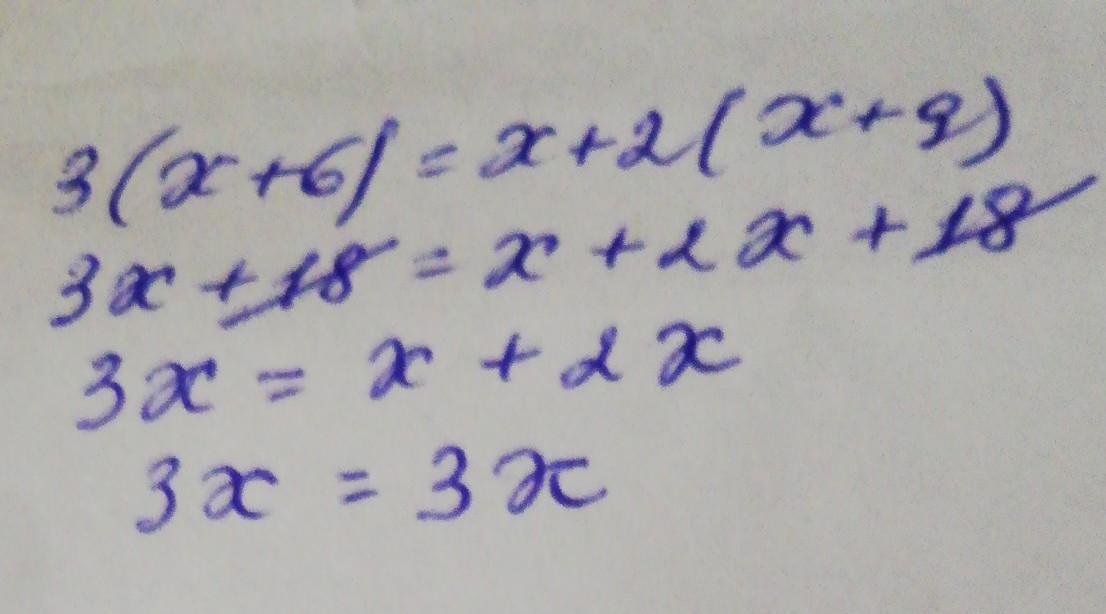 3(x+6) = x+2(x+9)
3x +18 = x + 2x + 18
3x = x + 2x
3x = 3x